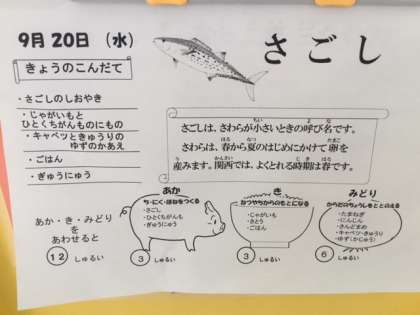 9月20日（水）
さごし
きょうのこんだて
・さごしのしおやき
・じゃがいもと
ひとくちがんものにもの
・キャベツときゅうりの
ゆずのかあえ
・ごはん
・ぎゅうにゅう
さごしは、さわらが小さいときの呼び名です。
さわらは、春から夏のはじめにかけて卵を
産みます。関西では、よくとれる時期は春です。
あか・き・みどり
を
あわせると
12 しゅるい
あか
ち・にく・ほねをつくる
・さごし
・ひとくちがんも
・ぎゅうにゅう
3 しゅるい
き
ねつやちからのもとになる
・じゃがいも
・さとう
・ごはん
3 しゅるい
みどり
からだのちょうしをととのえる
・たまねぎ
・にんじん
・さんどまめ
・キャベツ・きゅうり
・ゆず（かじゅう）
6 しゅるい